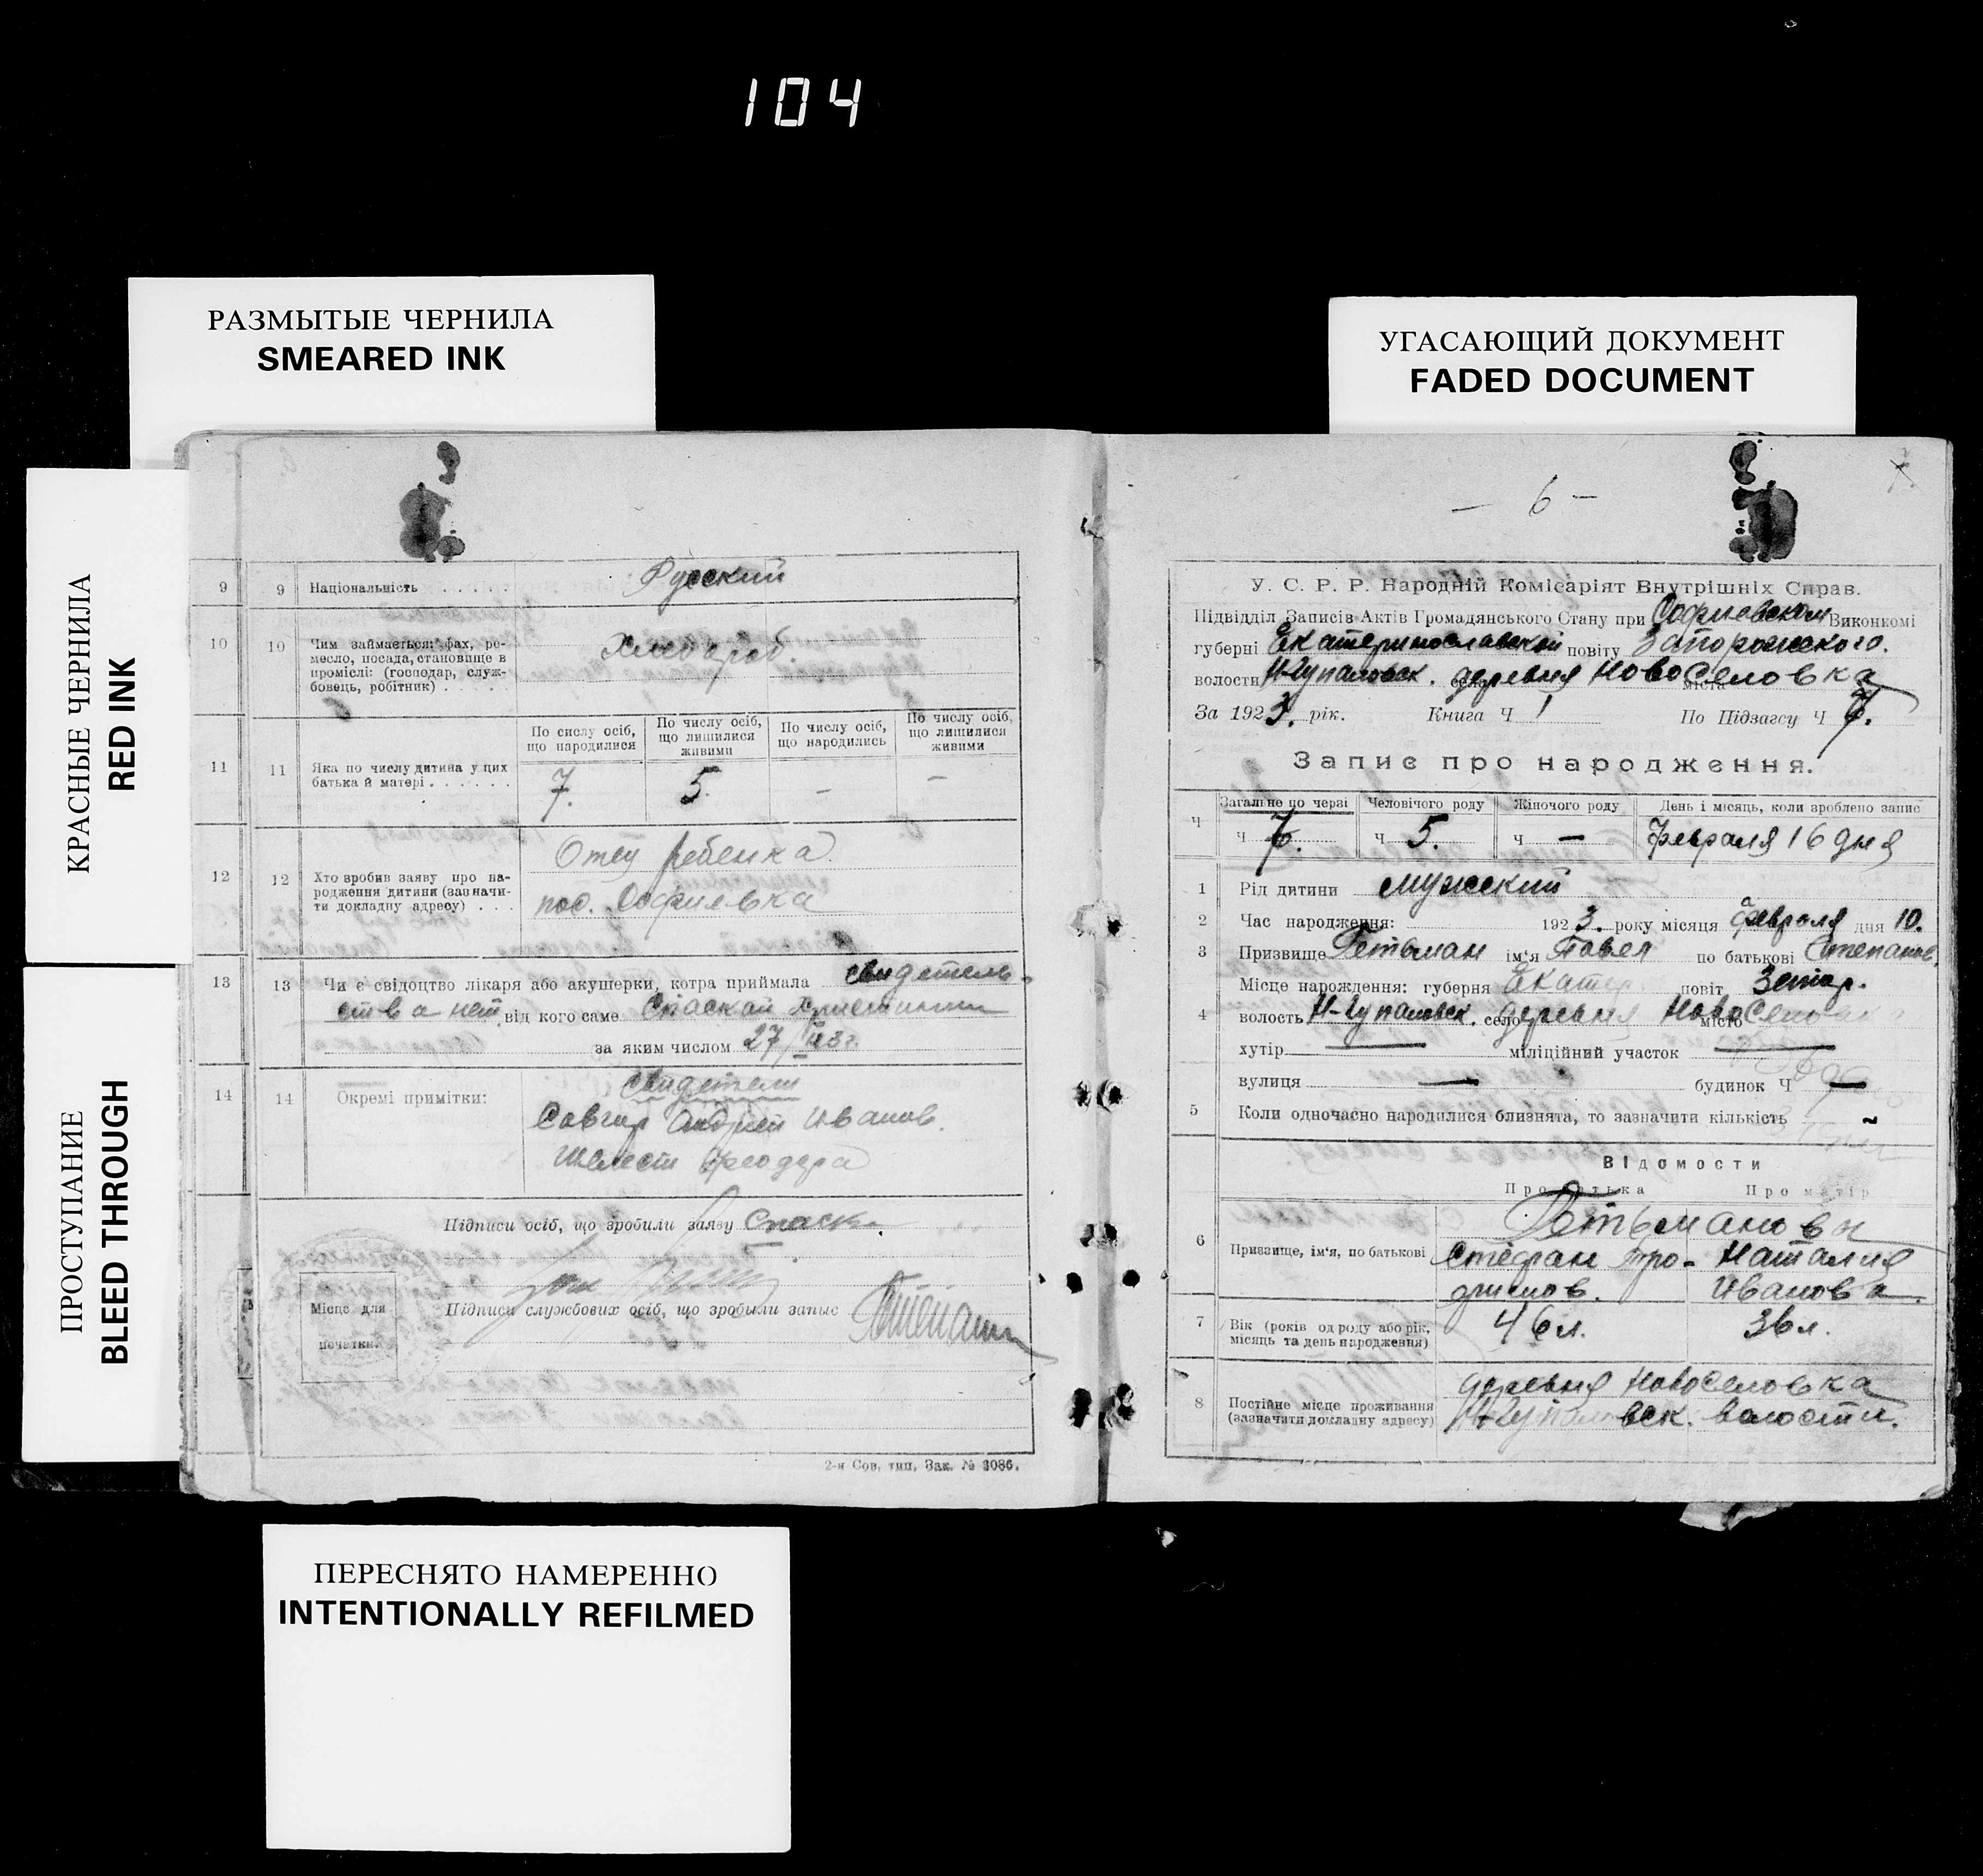 104
РАЗМЫТЫЕ ЧЕРНИЛА
SMEARED INK
УГАСАЮЩИЙ ДОКУМЕНТ
FADED DOCUMENT
КРАСНЫЕ ЧЕРНИЛА
RED INK
ПРОСТУПАНИЕ
BLEED THROUGH
9 9 Національність Русский
10 10 Чим займається: фах, ре-
месло, посада, становище в
промислі: (господар, служ-
бовець, робітник) Хлебороб.
По сислу осіб, що народилися
По числу осіб, що лишилися живими
По числу осіб, що народились
По числу осіб, що лишилися живими
11 11 Яка по числу дитина у цих
батька й матері 7. 5. – –
12 12 Хто зробив заяву про на-
родження дитини (зазначи-
ти докладну адресу)
Отец ребенка.
пос. Софиевка
13 13 Чи є свідоцтво лікаря або акушерки, котра приймала свидетель-
ства нет від кого саме
за яким числом 27/
14 14 Окремі примітки:
Свидетели
Андрей Иванов.
Шелест Феодора
Підписи осіб, що зробили заяву
Підписи службових осіб, що зробыли запис
Місце для
печатки.
2-я Сов. тип. Зак. № 3086.
– 6 –
У. С. Р. Р. Народній Комісаріят Внутрішніх Справ.
Підвідділ Записів Актів Громадянського Стану при Софиевском Виконкомі
губерні Екатеринославской повіту Запорожского.
волости Н-Гупаловск. села деревня Новоселовка
міста
За 1923. рік. Книга Ч 1 По Підзагсу Ч 7.
Запис про народження.
Ч Загальне по черзі Человічого роду Жіночого роду День і місяць, коли зроблено запис
Ч 7. Ч 5. Ч — Февраля 16 дня
1 Рід дитини мужский
2 Час народження: 1923. року місяця февраля дня 10.
3 Призвище Гетьман ім'я Павел по батькові Степанов.
Місце нарождення: губерня Екатер. повіт Запор.
4 волость Н-Гупаловск. село деревня місто Новоселовка
хутір — міліційний участок —
вулиця — будинок Ч —
5 Коли одночасно народилися близнята, то зазначити кількість
Відомости
Про батька Про матір
Гетьмановы
6 Призвище, ім'я, по батькові Стефан Тро- Наталия
фимов. Иванова.
7 Вік (років од роду або рік,
місяць та день народження) 46 л. 36 л.
8 Постійне місце проживання
(зазначити докладну адресу)
деревня Новоселовка
Н-Гупаловск. волости.
ПЕРЕСНЯТО НАМЕРЕННО
INTENTIONALLY REFILMED